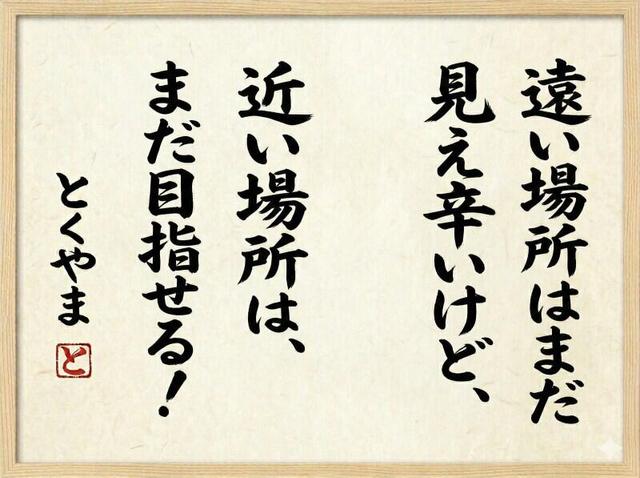 遠い場所はまだ
見え辛いけど、
近い場所は、
まだ目指せる!
とくやま
と